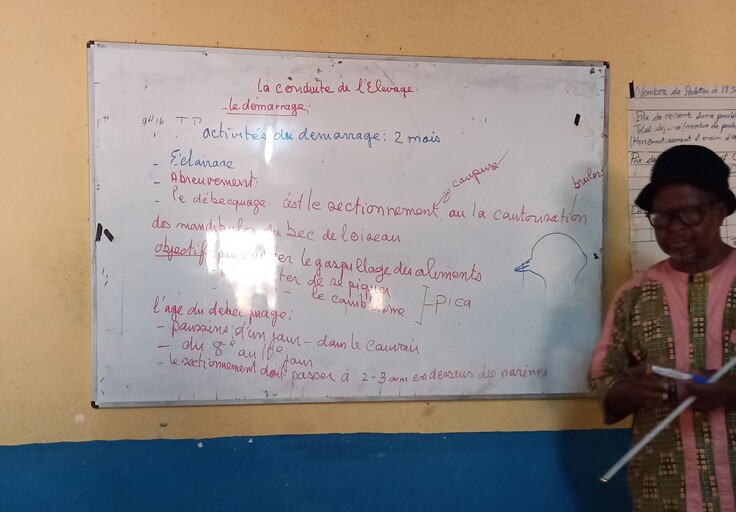 La conduite de l'Elevage:
- le démarrage;
9H16 T P
activités du demarrage: 2 mois
- Eclairage
- Abreuvement:
coupure
bruler
- le débecquage: c'est le sectionnement ou la cautorisation
des mandibules du bec de l'oiseau
objectif: eviter le gaspillage des aliments
- eviter de se piquer
- le canibalisme
- pica
l'age du debecquage:
- poussins d'un jour - dans le couvoir
- du 8e au 10e jour
- le sectionnement doit passer à 2-3 mm en dessous des narines
Nombre de
Prix de